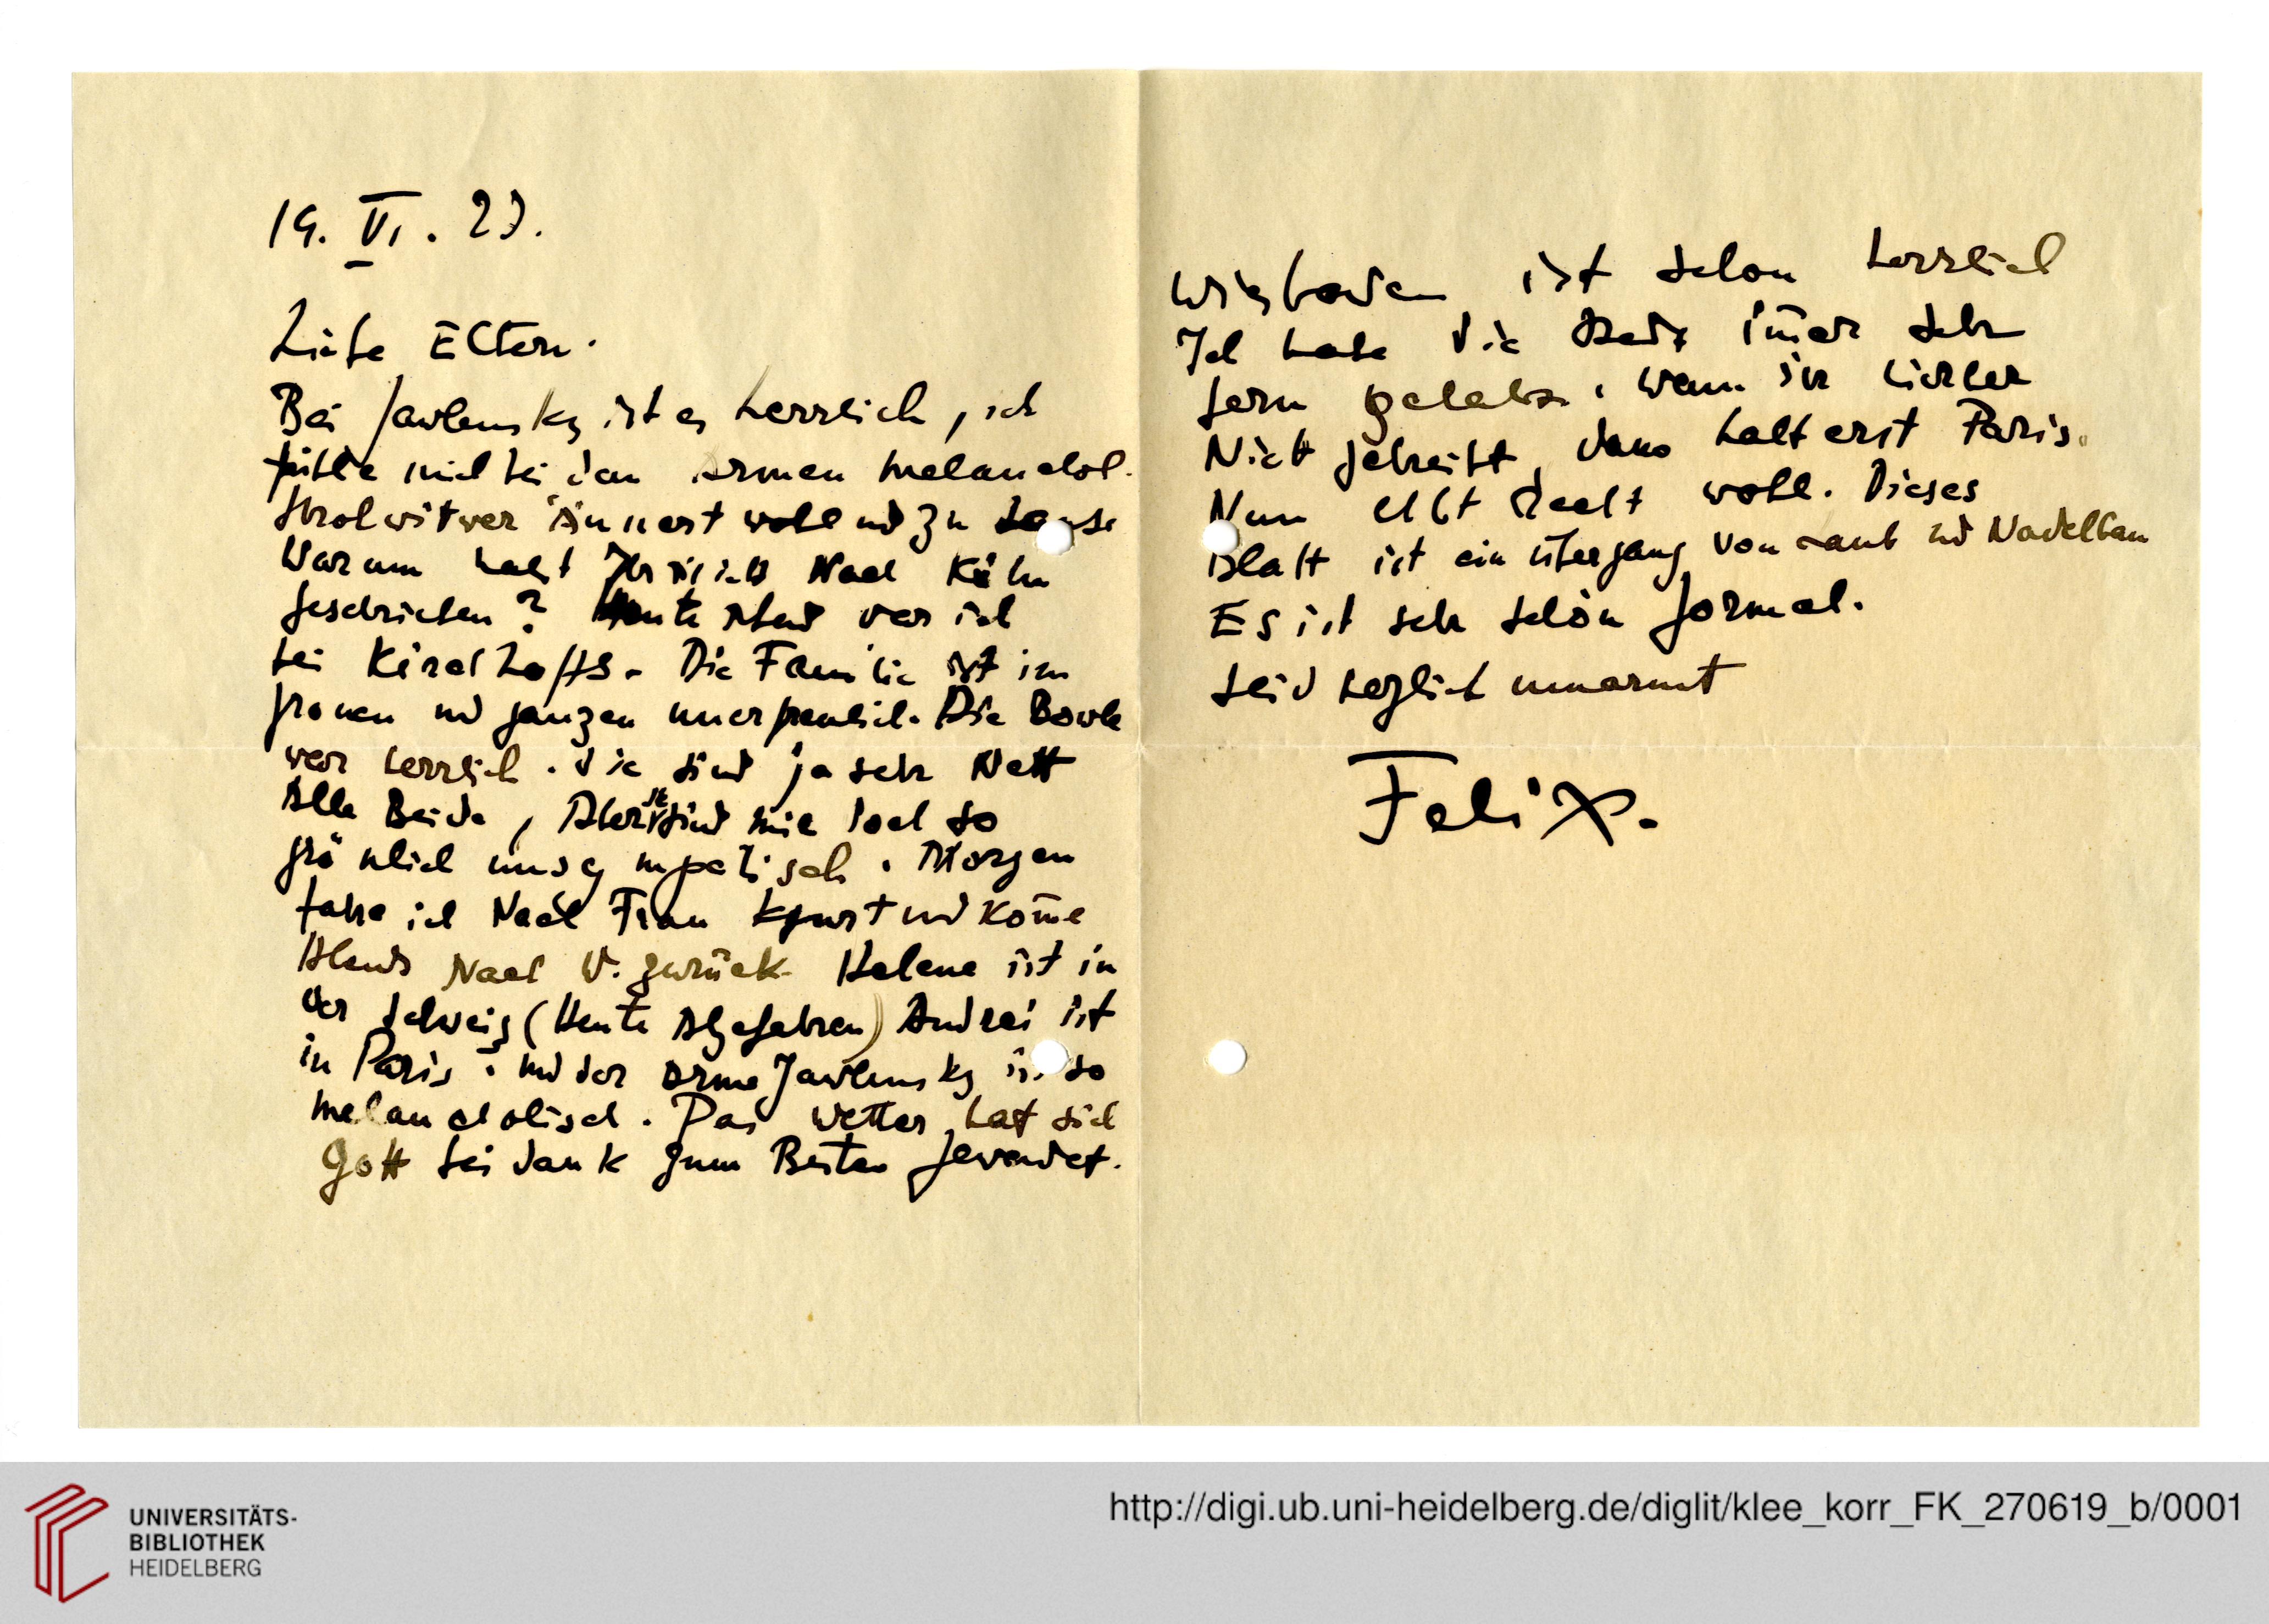 19. VI. 27.
Liebe Eltern.
Bei Jawlensky ist es herrlich, ich
fühle mich bei dem armen melanchol.
Strohwitwer äuserst wohl und zu Hause
Warum habt Ihr nicht Nach Köln
geschrieben? Heute Abend war ich
bei Kirchhoffs. Die Familie ist im
grossen und ganzen unerfreulich. Die Bowle
war herrlich. Sie sind ja sehr Nett
Alle Beide, Aber sie sind mir doch so
gräslich unsympatisch. Morgen
fahre ich Nach Frankfurt und kom̄e
Abends Nach W. zurück. Helene ist in
der Schweiz (Heute Abgefahren) Andrei ist
in Paris. und der arme Jawlensky is so
melancholisch. Das Wetter hat sich
Gott sei dank zum Besten gewendet.
Wiesbaden ist schon herrlich
Ich habe die Stadt im̄er sehr
gern gehabt. Wenn ihr hierher
Nicht schreibt, dann halt erst Paris.
Nun lebt recht wohl. Dieses
Blatt ist ein übergang von Laub und Nadelbau
Es ist sehr schön formal.
Seid herzlich umarmt
Felix.
UNIVERSITÄTS-
BIBLIOTHEK
HEIDELBERG
http://digi.ub.uni-heidelberg.de/diglit/klee_korr_FK_270619_b/0001